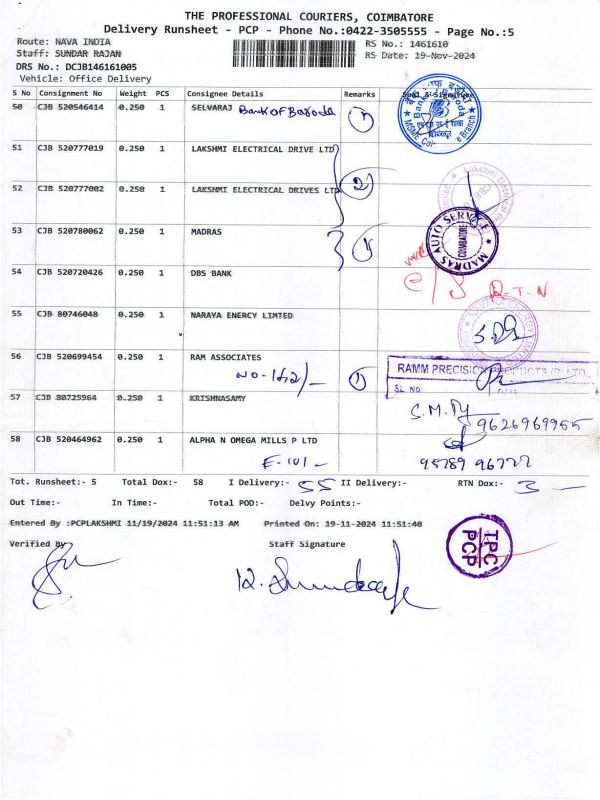 THE PROFESSIONAL COURIERS, COIMBATORE
Delivery Runsheet - PCP - Phone No.:0422-3505555 - Page No.:5
Route: NAVA INDIA RS No.: 1461610
Staff: SUNDAR RAJAN RS Date: 19-Nov-2024
DRS No.: DCJB146161005
Vehicle: Office Delivery
S No Consignment No Weight PCS Consignee Details Remarks Seal & Signature
50 CJB 520546414 0.250 1 SELVARAJ Bank Of Baroda
51 CJB 520777019 0.250 1 LAKSHMI ELECTRICAL DRIVE LTD
Lakshmi Electrical
52 CJB 520777002 0.250 1 LAKSHMI ELECTRICAL DRIVES LTD 2
53 CJB 520780062 0.250 1 MADRAS 1
MADRAS AUTO SERVICE
COIMBATORE
54 CJB 520720426 0.250 1 DBS BANK
R.T.N
55 CJB 80746048 0.250 1 NARAYA ENERGY LIMTED
56 CJB 520699454 0.250 1 RAM ASSOCIATES
NO-162/- 1
RAMM PRECISION PRODUCTS (P) LTD.,
SL. NO
57 CJB 80725964 0.250 1 KRISHNASAMY
9626969955
58 CJB 520464962 0.250 1 ALPHA N OMEGA MILLS P LTD
E-101-
95789 96777
Tot. Runsheet:- 5 Total Dox:- 58 I Delivery:- 55 II Delivery:- RTN Dox:- 3 -
Out Time:- In Time:- Total POD:- Delvy Points:-
Entered By :PCPLAKSHMI 11/19/2024 11:51:13 AM Printed On: 19-11-2024 11:51:40
Verified By Staff Signature
TPC
PCP